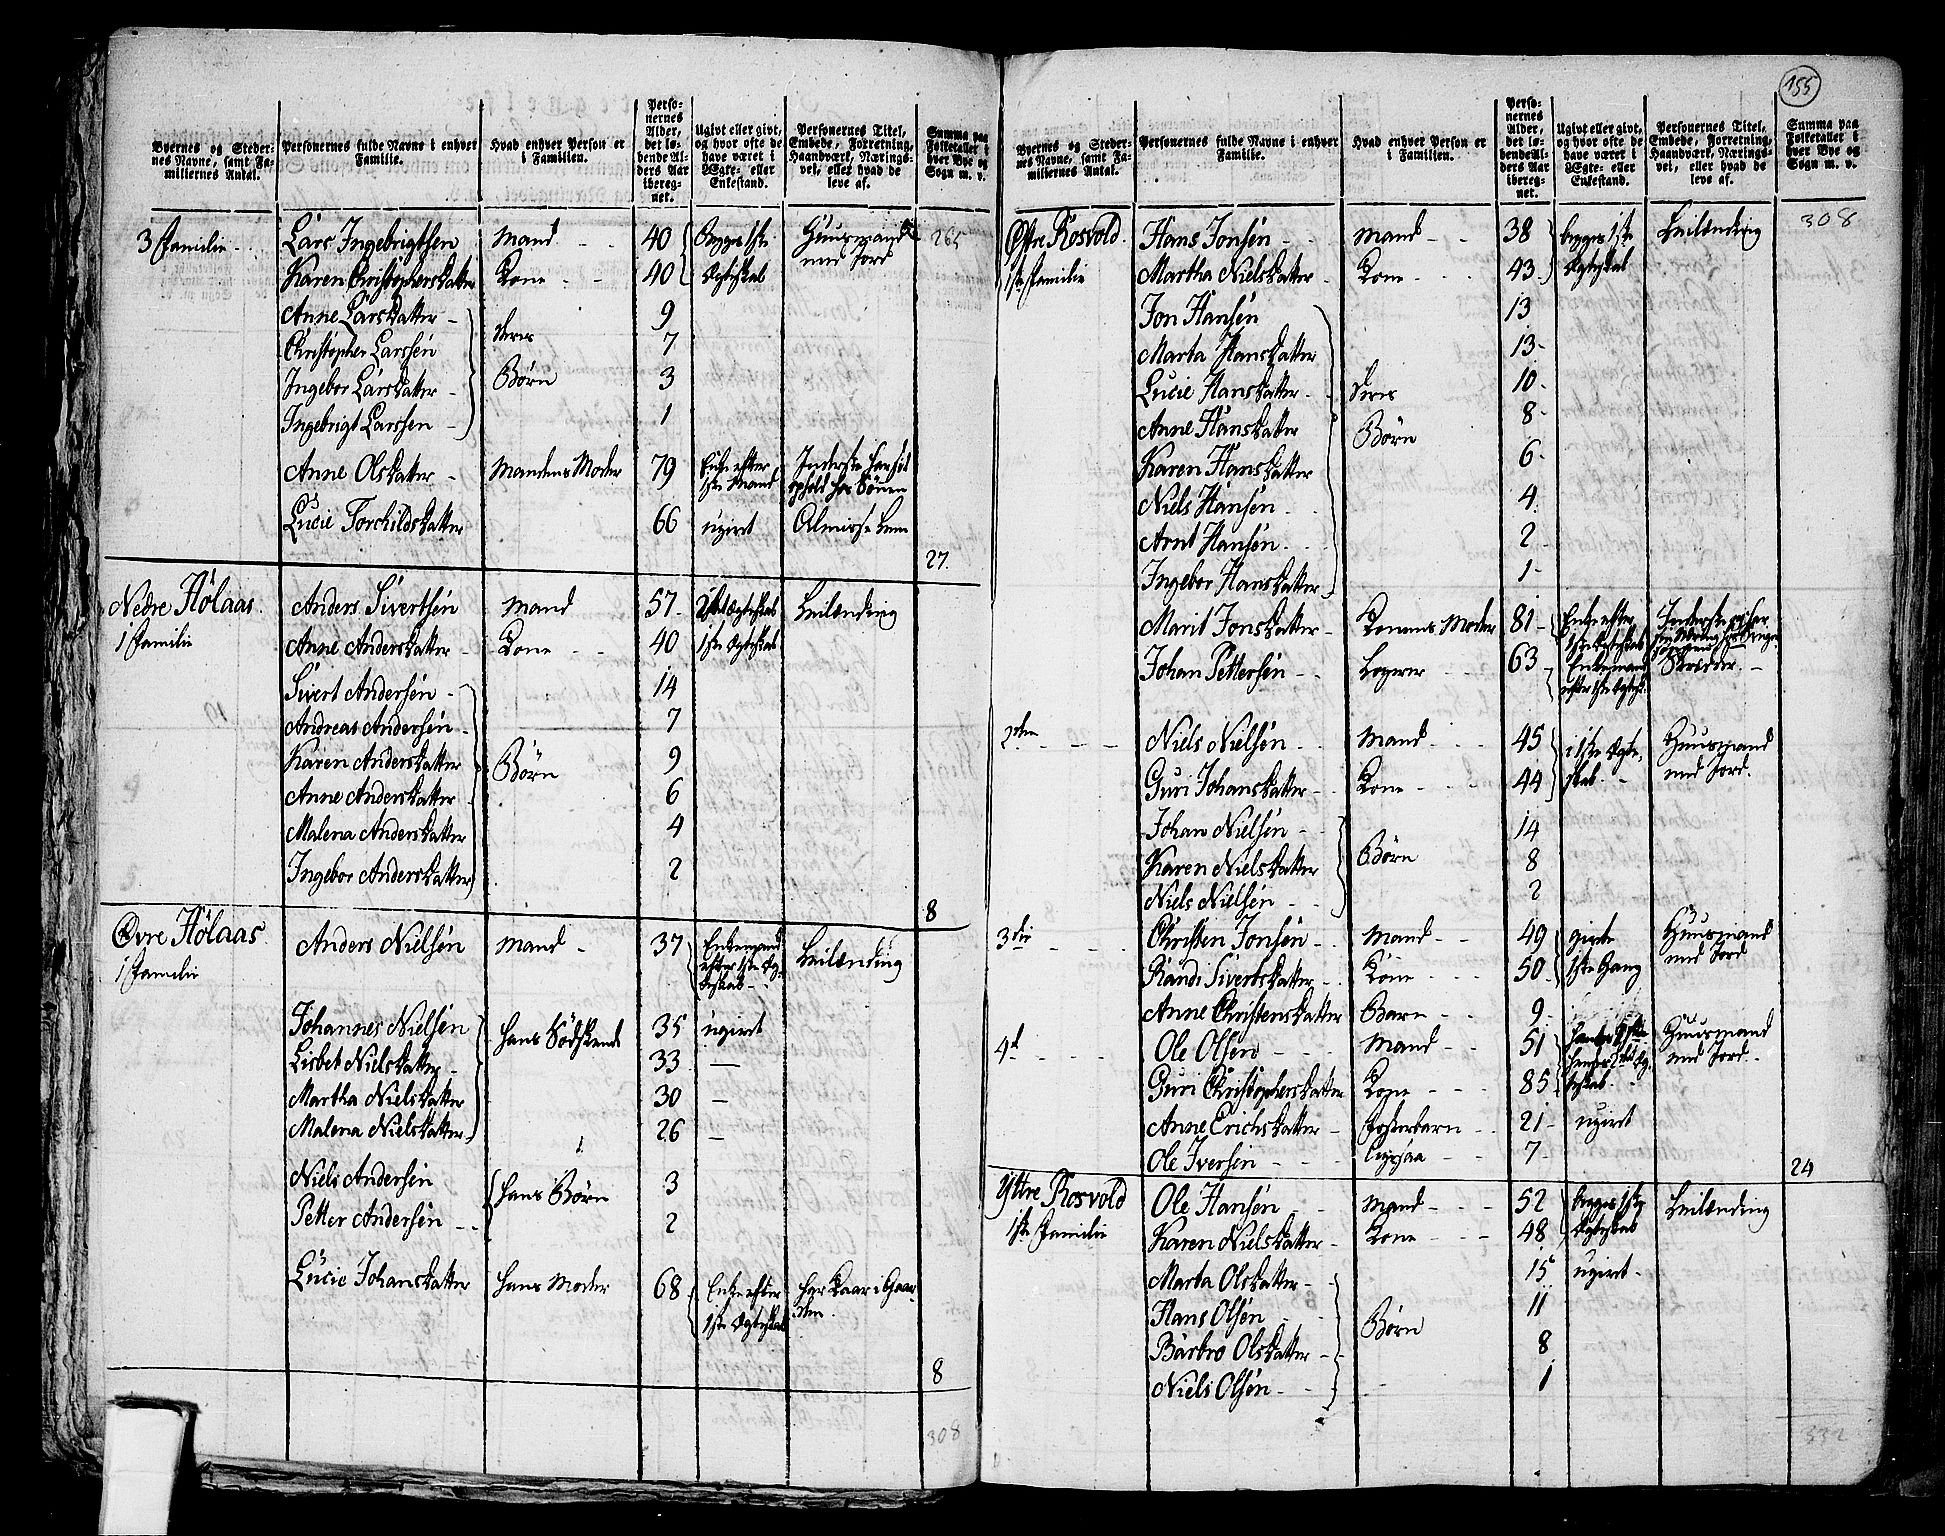 155
Byernes og Steder-
nes Navne, samt Fa-
miliernes Antal.
Personernes fulde Navne i enhver
Familie.
Hvad enhver Person er
i Familien.
Perso-
nernes
Alder,
det lø-
bende Al-
ders Aar
iberegnet.
Ugivt eller givt,
og hvor ofte de
have været i
Ægte- eller
Enkestand.
Personernes Titel,
Embede, Forretning,
Haandværk, Nærings-
vei, eller hvad de
leve af.
Summa paa
Folketallet i
hver Bye og
Sogn m. v.
3 Familie Lars Ingebrigtsen Mand 40 Begge 1ste Huusmand 265
Karen Christophersdatter Kone 40 Ægteskab med Jord
Anne Larsdatter 9
Christopher Larssen deres 7
Ingebor Larsdatter Børn 3
Ingebrigt Larssen 1
Anne Olsdatter Mandens Moder 79 Enke efter 1ste Mand Inderste har sit ophold hos Sönen
Lucie Torchildsdatter 66 ugivt Almisse Lem
27.
Nedre Hölaas. Anders Sivertsen Mand 57 2det Ægteskab Leilænding
1 Familie Anne Andersdatter Kone 40 1ste Ægteskab
Sivert Andersen 14
Andreas Andersen 7
Karen Andersdatter Børn 9
Anne Andersdatter 6
Malena Andersdatter 4
Ingebor Andersdatter 2
8
Øvre Hölaas. Anders Nielsen Mand 37 Enkemand efter 1ste Ægteskab Leilænding
1 Familie
Johannes Nielsen hans Södskende 35 ugivt
Lisbet Nielsdatter 33 —
Martha Nielsdatter 30 —
Malena Nielsdatter 26 —
Niels Andersen hans Börn 3
Petter Andersen 2
Lucie Johansdatter hans Moder 68 Enke efter har Kaar i Gaar-
1ste Ægteskab den.
8
308
Byernes og Steder-
nes Navne, samt Fa-
miliernes Antal.
Personernes fulde Navne i enhver
Familie.
Hvad enhver Person er
i Familien.
Perso-
nernes
Alder,
det lø-
bende Al-
ders Aar
ibereg-
net.
Ugivt eller givt,
og hvor ofte de
have været i
Ægte- eller
Enkestand.
Personernes Titel,
Embede, Forretning,
Haandværk, Nærings-
vei, eller hvad de
leve af.
Summa paa
Folketallet i
hver Bye og
Sogn m. v.
Øfre Rosvold. Hans Jonsen Mand 38 begge 1ste Leilænding 308
1ste Familie Martha Nielsdatter Kone 43 Ægteskab
Jon Hansen 13
Marta Hansdatter 13
Lucie Hansdatter deres 10
Anne Hansdatter Börn 8
Karen Hansdatter 6
Niels Hansen 4
Arnt Hansen 2
Ingebor Hansdatter 1
Marit Jonsdatter Konens Moder 81 Enke efter 1ste Ægteskab Inderste
Johan Pettersen Logerer 63 Enkemand efter 1ste Ægtesk. Skræder.
2den Niels Nielsen Mand 45 i 1ste Ægte- Huusmand
Guri Johansdatter Kone 44 skab. med Jord.
Johan Nielsen 14
Karen Nielsdatter Börn 8
Niels Nielsen 2
3die Christen Jonsen Mand 49 givte Huusmand
Randi Sivertsdatter Kone 50 1ste Gang med Jord
Anne Christensdatter Barn 9
4d Ole Olsen Mand 51 Huusmand
Guri Christophersdatter Kone 85 med Jord.
Anne Erichsdatter Fosterbarn 21 ugivt
Ole Iversen 7
24
Yttre Rosvold Ole Hansen Mand 52 begge 1ste Leilænding
1ste Familie Karen Nielsdatter Kone 48 Ægteskab
Marta Olsdatter 15 ugivt
Hans Olsen 11
Barbro Olsdatter Børn 8
Niels Olsen 1
332